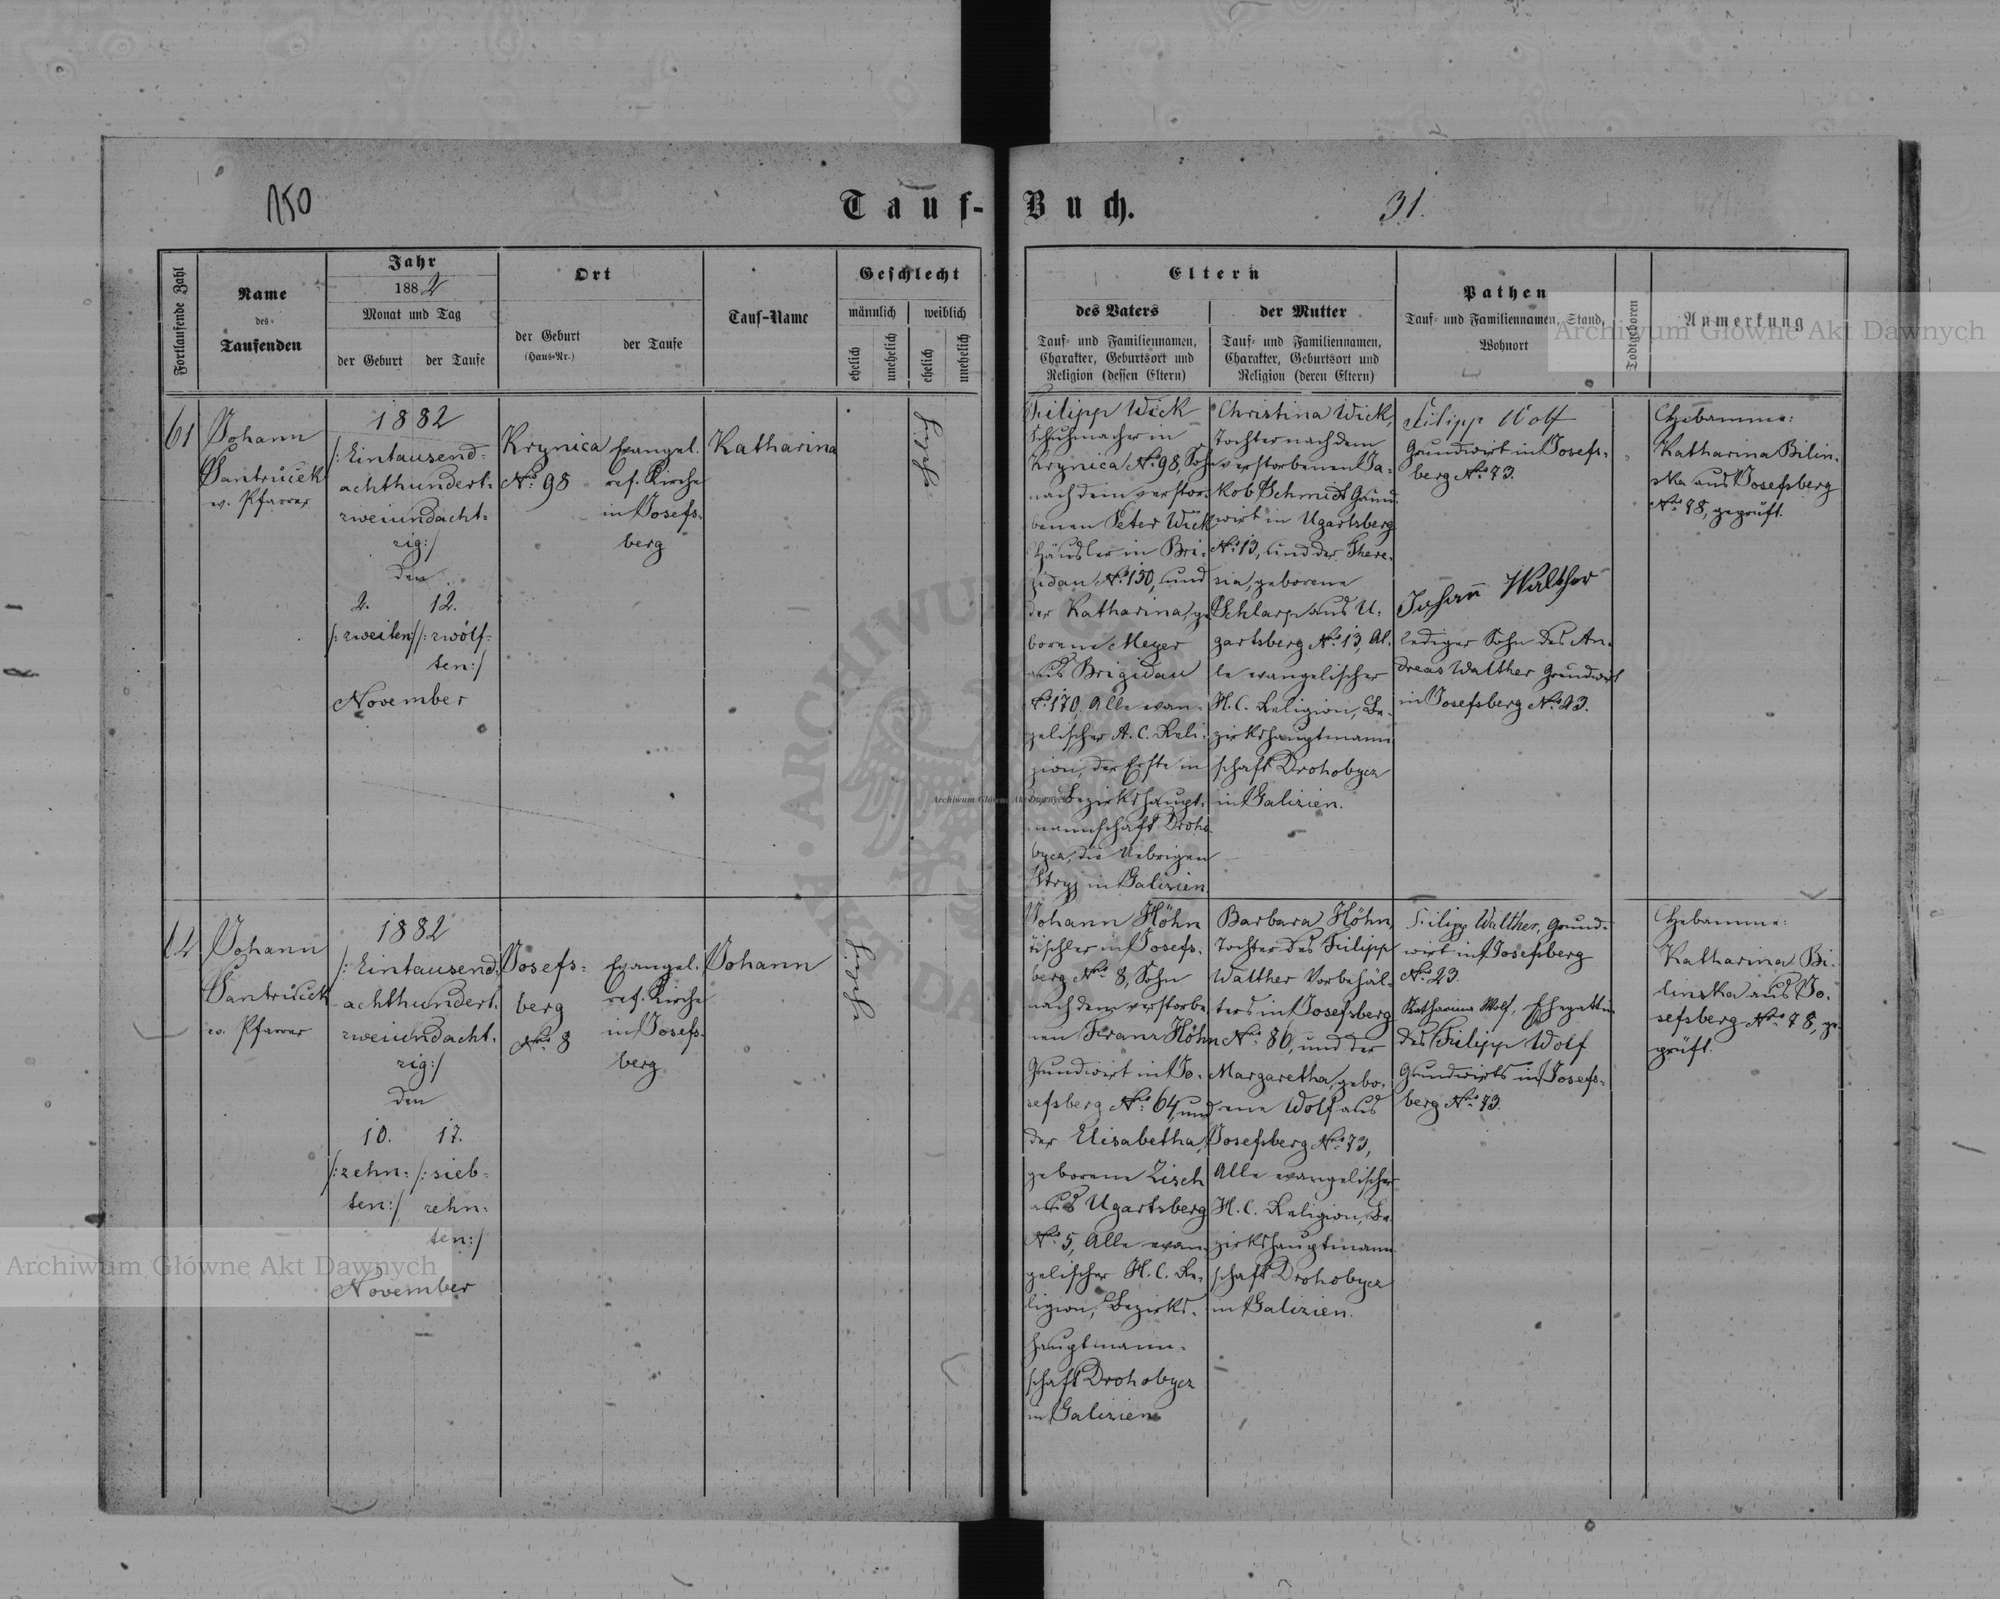 150
Tauf-Buch.
31.
Fortlaufende Zahl
Name
des
Taufenden
Jahr
1882
Monat und Tag
der Geburt
der Taufe
Ort
der Geburt
(Haus-Nr.)
der Taufe
Tauf-Name
Geschlecht
männlich
weiblich
ehelich
unehelich
ehelich
unehelich
Eltern
des Vaters
Tauf- und Familiennamen,
Charakter, Geburtsort und
Religion (dessen Eltern)
der Mutter
Tauf- und Familiennamen,
Charakter, Geburtsort und
Religion (deren Eltern)
Pathen
Tauf- und Familiennamen, Stand,
Wohnort
Todtgeboren
Anmerkung
61
Johann
Santrůček
ev. Pfarrer
1882
/: Eintausend-
achthundert-
zweiundacht-
zig:/
den
2.
12.
/: zweiten:/
/: zwölf-
ten:/
November
Krynica
No. 98
Evangel.
ref. Kirche
in Josefs-
berg
Katharina
Filipp Wick
Schuhmacher in
Krynica No. 98, Sohn
nach dem verstor-
benen Peter Wick
Häusler in Bri-
gidau No. 150, und
der Katharina, ge-
borene Meyer
aus Brigidau
No. 170, Alle evan-
gelischer A. C. Reli-
gion, der Erste in
Bezirkshaupt-
mannschaft Droho
bycz, die Uebrigen
Stryj in Galizien.
Christina Wick,
Tochter nach dem
verstorbenen Ja-
kob Schmidt Grund-
wirt in Ugartsberg
No. 13, und der There-
sia, geborene
Schlarp aus U-
gartsberg No. 13, Al-
le evangelischer
H. C. Religion, Be-
zirkshauptmann-
schaft Drohobycz
in Galizien.
Filipp Wolf
Grundwirt in Josefs-
berg No. 73.
Johann Walther
lediger Sohn des An-
dreas Walther Grundwirt
in Josefsberg No. 23.
Hebamme:
Katharina Bilin-
ska aus Josefsberg
No. 78, geprüft.
62
Johann
Santrůček
ev. Pfarrer
1882
/: Eintausend-
achthundert-
zweiundacht-
zig:/
den
10.
17.
/: zehn-
ten:/
/: sieb-
zehn-
ten:/
November
Josefs-
berg
No. 8
Evangel.
ref. Kirche
in Josefs-
berg
Johann
Johann Höhn
Tischler in Josefs-
berg No. 8, Sohn
nach dem verstorbe-
nen Franz Höhn
Grundwirt in Jo-
sefsberg No. 64, und
der Elisabetha,
geborene Zisch
aus Ugartsberg
No. 5, Alle evan-
gelischer H. C. Re-
ligion, Bezirks-
hauptmann-
schaft Drohobycz
in Galizien.
Barbara Höhn,
Tochter des Filipp
Walther Vorbehäl-
ters in Josefsberg
No. 86, und der
Margaretha, gebo-
rene Wolf aus
Josefsberg No. 73,
Alle evangelischer
H. C. Religion, Be-
zirkshauptmann-
schaft Drohobycz
in Galizien.
Filipp Walther, Grund-
wirt in Josefsberg
No. 23.
Katharina Wolf, Ehegattin
des Filipp Wolf
Grundwirts in Josefs-
berg No. 73.
Hebamme:
Katharina Bi-
linska aus Jo-
sefsberg No. 78, ge-
prüft.
Archiwum Główne Akt Dawnych
Archiwum Główne Akt Dawnych
Archiwum Główne Akt Dawnych